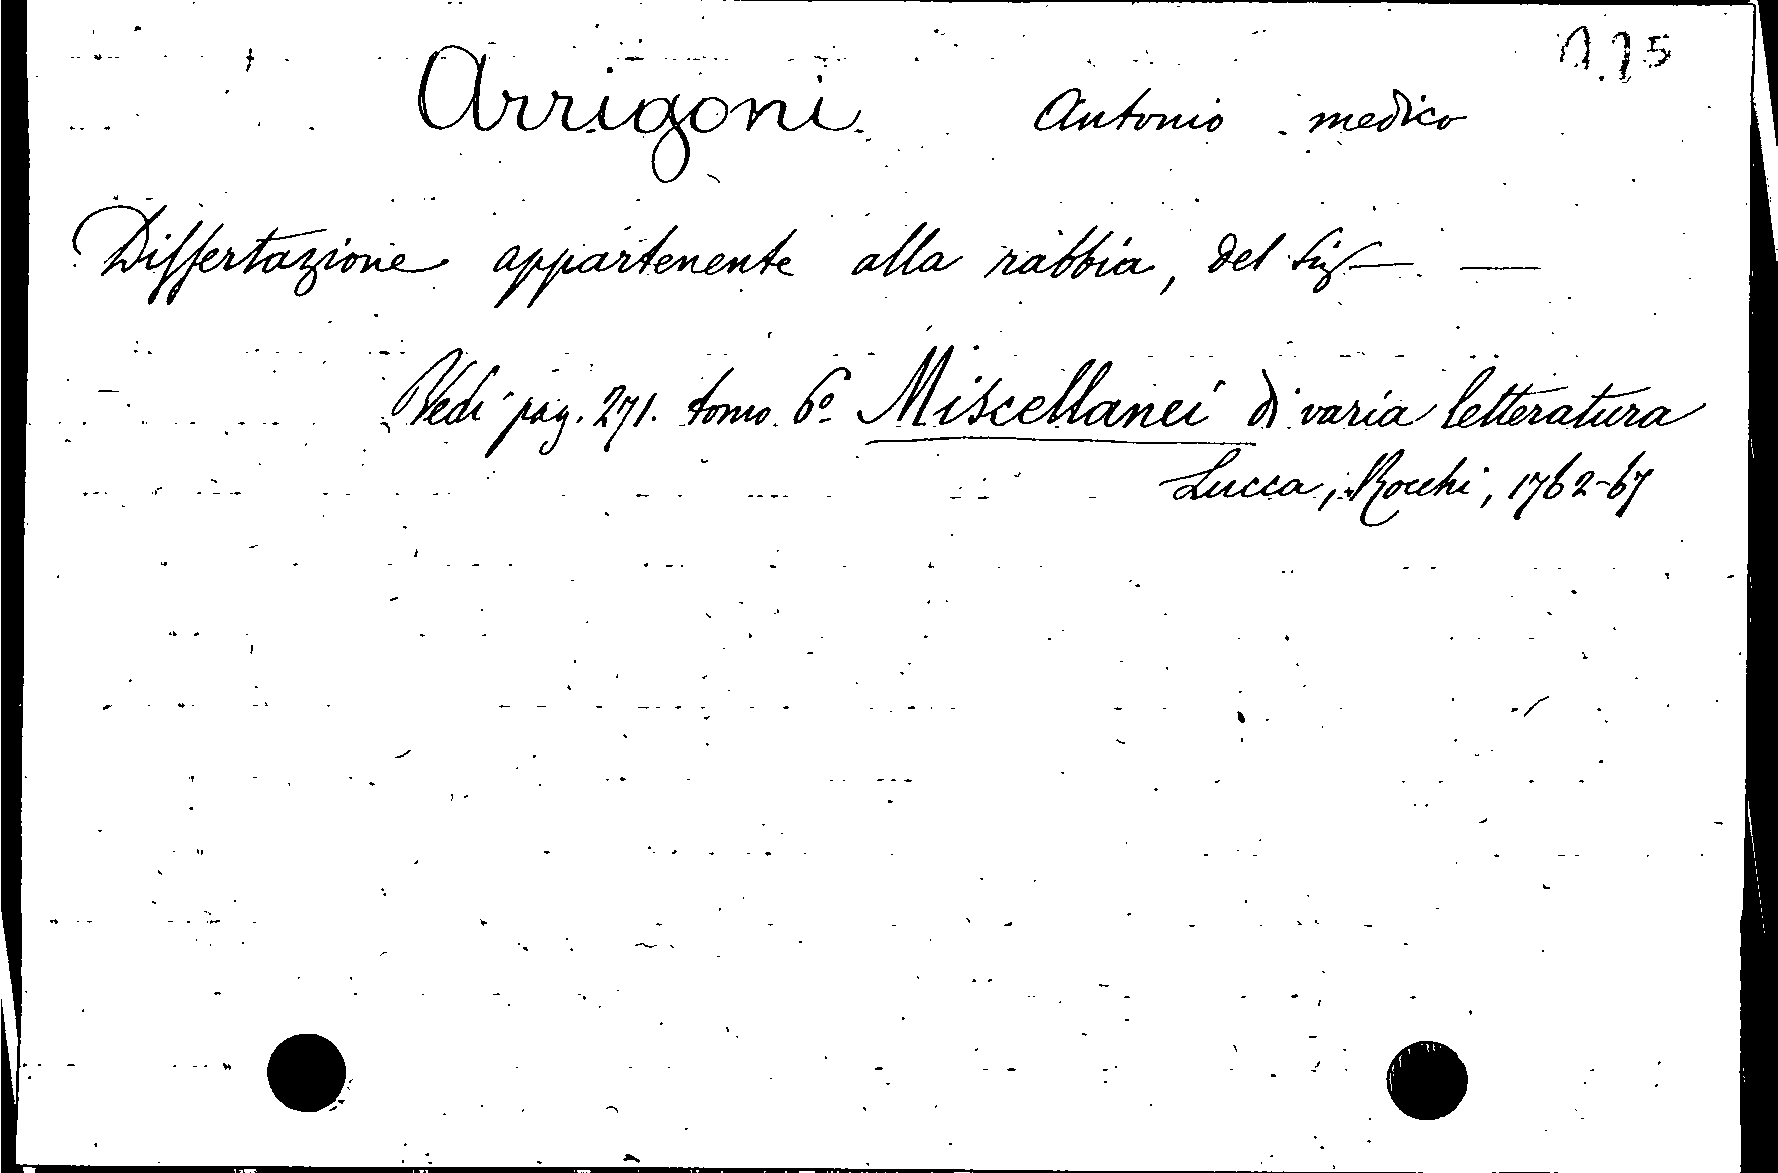 Arrigoni Antonio medico
Dissertazione appartenente alla rabbia, del Sig — —
Vedi pag. 271. tomo 6º Miscellanei di varia letteratura
Lucca, Rocchi, 1762-67